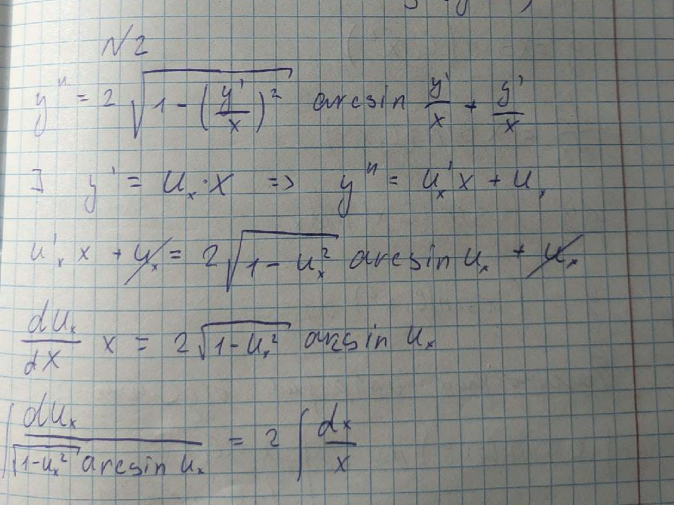 N2
y'' = 2 √(1 - (y'/x)²) arcsin y'/x + y'/x
∃ y' = uₓ·x => y'' = u'ₓ x + uₓ
u'ₓ x + uₓ = 2√(1 - uₓ²) arcsin uₓ + uₓ
duₓ/dx x = 2√(1-uₓ²) arcsin uₓ
∫ duₓ/(√(1-uₓ²) arcsin uₓ) = 2 ∫ dx/x